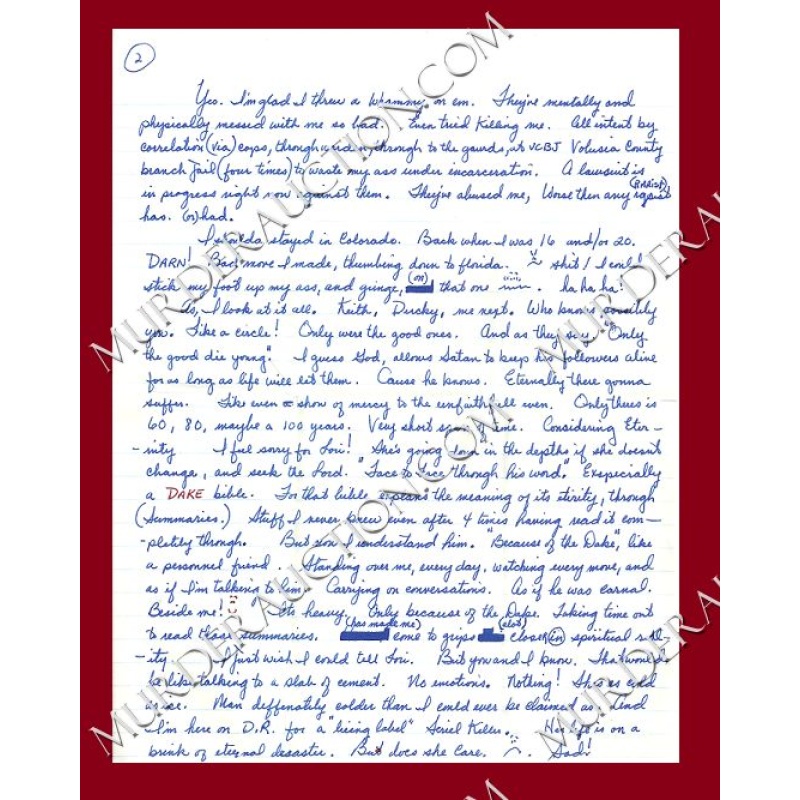 2
Yeo. I'm glad I threw a Whammy on em. They've mentally and
physically messed with me so bad. Even tried killing me. All intent by
correlation (via) cops, through to the gaurds, at VCBJ Volusia County
branch Jail (four times) to waste my ass under incarceration. A lawsuit is
in progress right now against them. They've abused me, Worse then any (RAPIST)
has. (or) had.
I shoulda stayed in Colorado. Back when I was 16 and/or 20.
DARN! Bad move I made, thumbing down to florida. shit! I could
stick my foot up my ass, and ginge, (on) that one . ha ha ha!
As, I look at it all. Keith, Ducky, me next. Who knows possibly
you. Like a circle! Only were the good ones. And as they say "Only
the good die young". I guess God, allows Satan to keep his followers alive
for as long as life will let them. Cause he knows. Eternally there gonna
suffer. Like even a show of mercy to the unfaithfull even. Only theres is
60, 80, maybe a 100 years. Very short span of time. Considering Eter-
-nity I feel sorry for Lori! She's going down in the depths if she doesn't
change, and seek the Lord. "Face to face through his word." Exspecially
a DAKE bible. For that bible expeans the meaning of its etirity, through
(Summaries.) Stuff I never knew even after 4 times having read it com-
-pletily through. But now I understand him. "Because of the Dake", like
a personnel friend. Standing over me, every day, watching every move, and
as if I'm talken to him. Carrying on conversations. As if he was carnal.
Beside me! Its heavy. Only because of the Dake. Taking time out
to read those summaries. (has made me) come to grips (alot) closer (in) spiritical reall-
-ity. I just wish I could tell Lori. But you and I know. That would
be like talking to a slab of cement. No emotions. Nothing! She's as cold
as ice. Man deffenately colder than I could ever be claimed as. And
I'm here on D.R. for a "being label" Serial Killer. Her life is on a
brink of eternal desaster. But does she care. Sad!
MURDERAUCTION.COM
MURDERAUCTION.COM
MURDERAUCTION.COM
MURDERAUCTION.COM